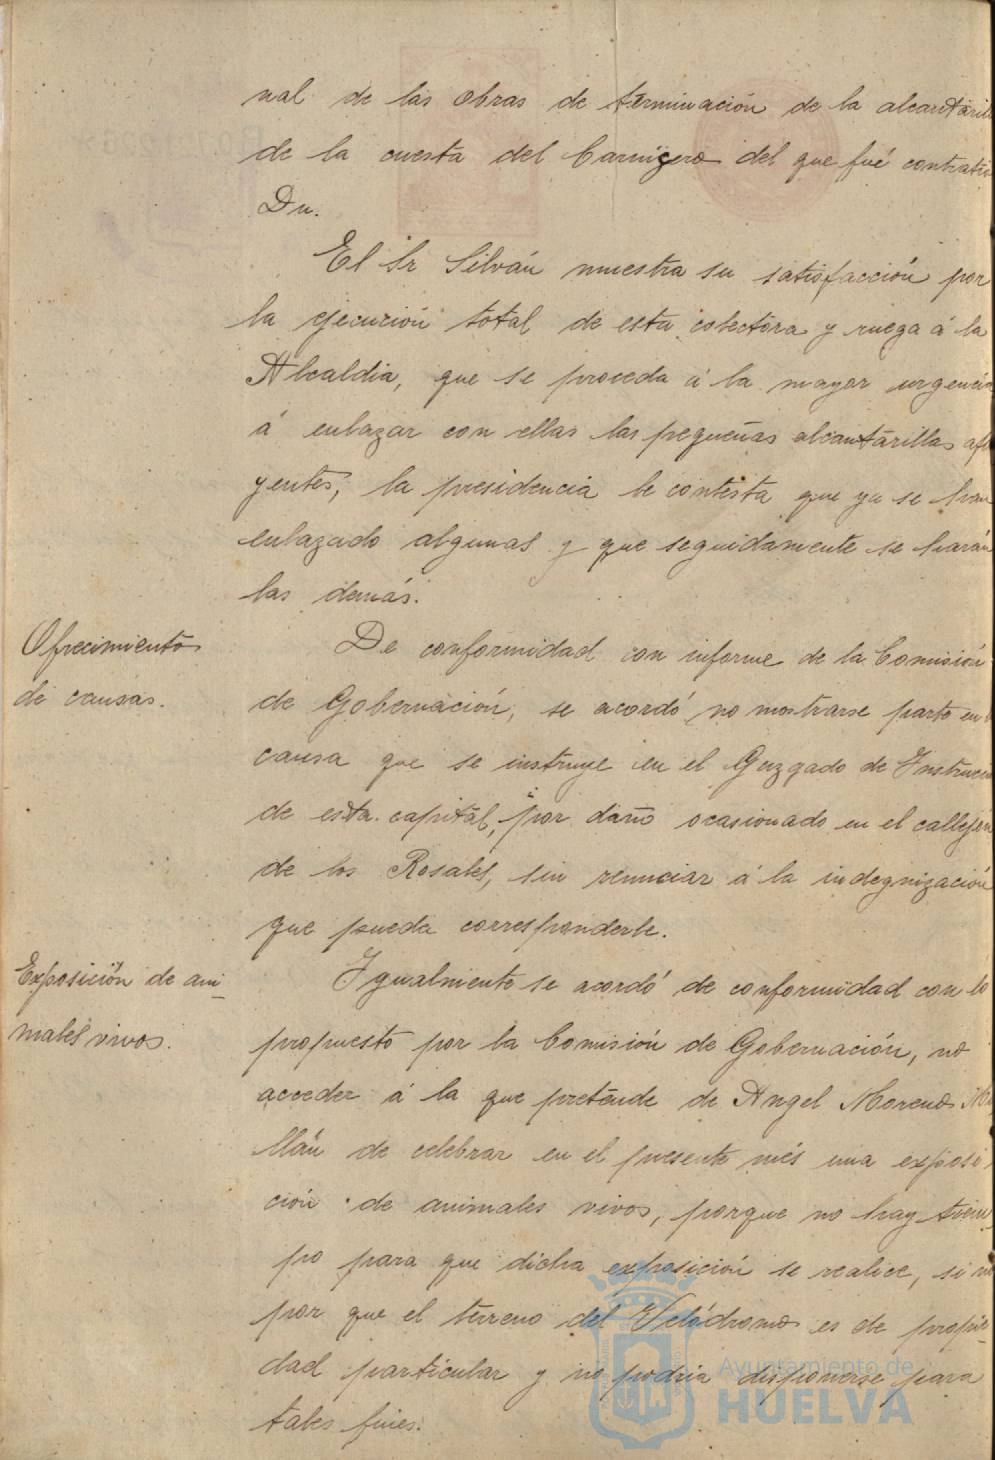 nal de las obras de terminación de la alcantarill
de la cuesta del Carnicero del que fué contrati
Dn.
El Sr Silván muestra su satisfacción por
la ejecución total de esta colectora y ruega á la
Alcaldia, que se proceda á la mayor urgencia
á enlazar con ellas las pequeñas alcantarillas afl
yentes; la presidencia le contesta que ya se han
enlazado algunas y que seguidamente se harán
las demás.
Ofrecimiento
de causas.
De conformidad con informe de la Comisión
de Gobernación, se acordó no mostrarse parte en
causa que se instruye en el Guzgado de Instrucci
de esta capital, por daño ocasionado en el callejon
de los Rosales, sin renunciar á la indegnización
que pueda corresponderle.
Exposición de ani-
males vivos.
Igualmente se acordó de conformidad con lo
propuesto por la Comisión de Gobernación, no
acceder á la que pretende de Angel Moreno
llán de celebrar en el presente més una exposi
ción de animales vivos, porque no hay tiem
po para que dicha exposición se realice, si no
por que el terreno del Velódromo es de propie-
dad particular y no podria disponerse para
tales fines.
Ayuntamiento de
HUELVA